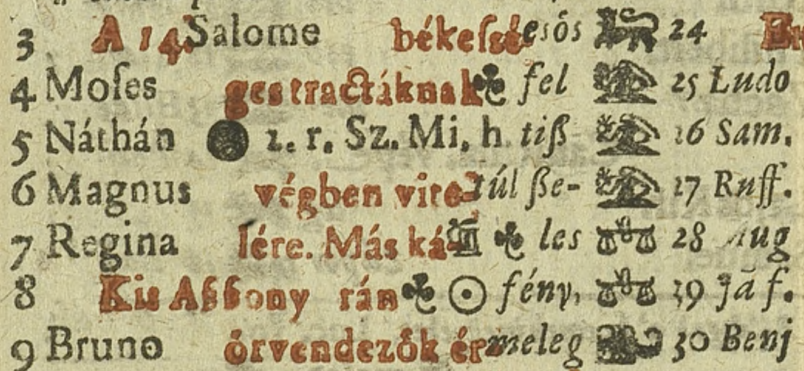 3 A 14. Salome békeſsé- esős 24
4 Moſes ges tractáknak fel 25 Ludo
5 Náthán 1. r. Sz. Mi, h tiß 26 Sam.
6 Magnus végben vite- túl ße- 27 Ruff.
7 Regina lére. Más ká- les 28 Aug
8 Kis Aſſony rán fény, 29 Jā f.
9 Bruno örvendezők ér- meleg 30 Benj